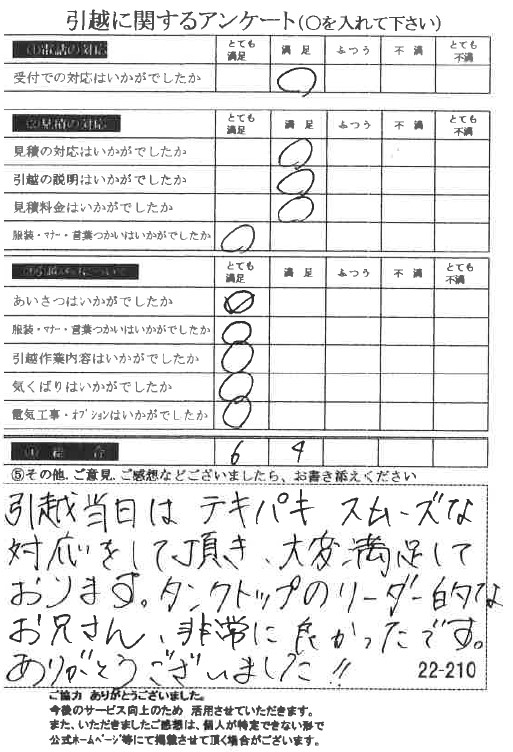 引越に関するアンケート(〇を入れて下さい)
①電話の対応 とても満足 満足 ふつう 不満 とても不満
受付での対応はいかがでしたか ○
②見積の対応 とても満足 満足 ふつう 不満 とても不満
見積の対応はいかがでしたか ○
引越の説明はいかがでしたか ○
見積料金はいかがでしたか ○
服装・マナー・言葉つかいはいかがでしたか ○
とても満足 満足 ふつう 不満 とても不満
あいさつはいかがでしたか ○
服装・マナー・言葉つかいはいかがでしたか ○
引越作業内容はいかがでしたか ○
気くばりはいかがでしたか ○
電気工事・オプションはいかがでしたか ○
④総合 6 4
⑤その他.ご意見.ご感想などございましたら、お書き添えください
引越当日は テキパキ スムーズな
対応をして頂き、大変満足して
おります。タンクトップのリーダー的な
お兄さん、非常に良かったです。
ありがとうございました!!
22-210
ご協力 ありがとうございました。
今後のサービス向上のため 活用させていただきます。
また、いただきましたご感想は、個人が特定できない形で
公式ホームページ等にて掲載させて頂く場合がございます。